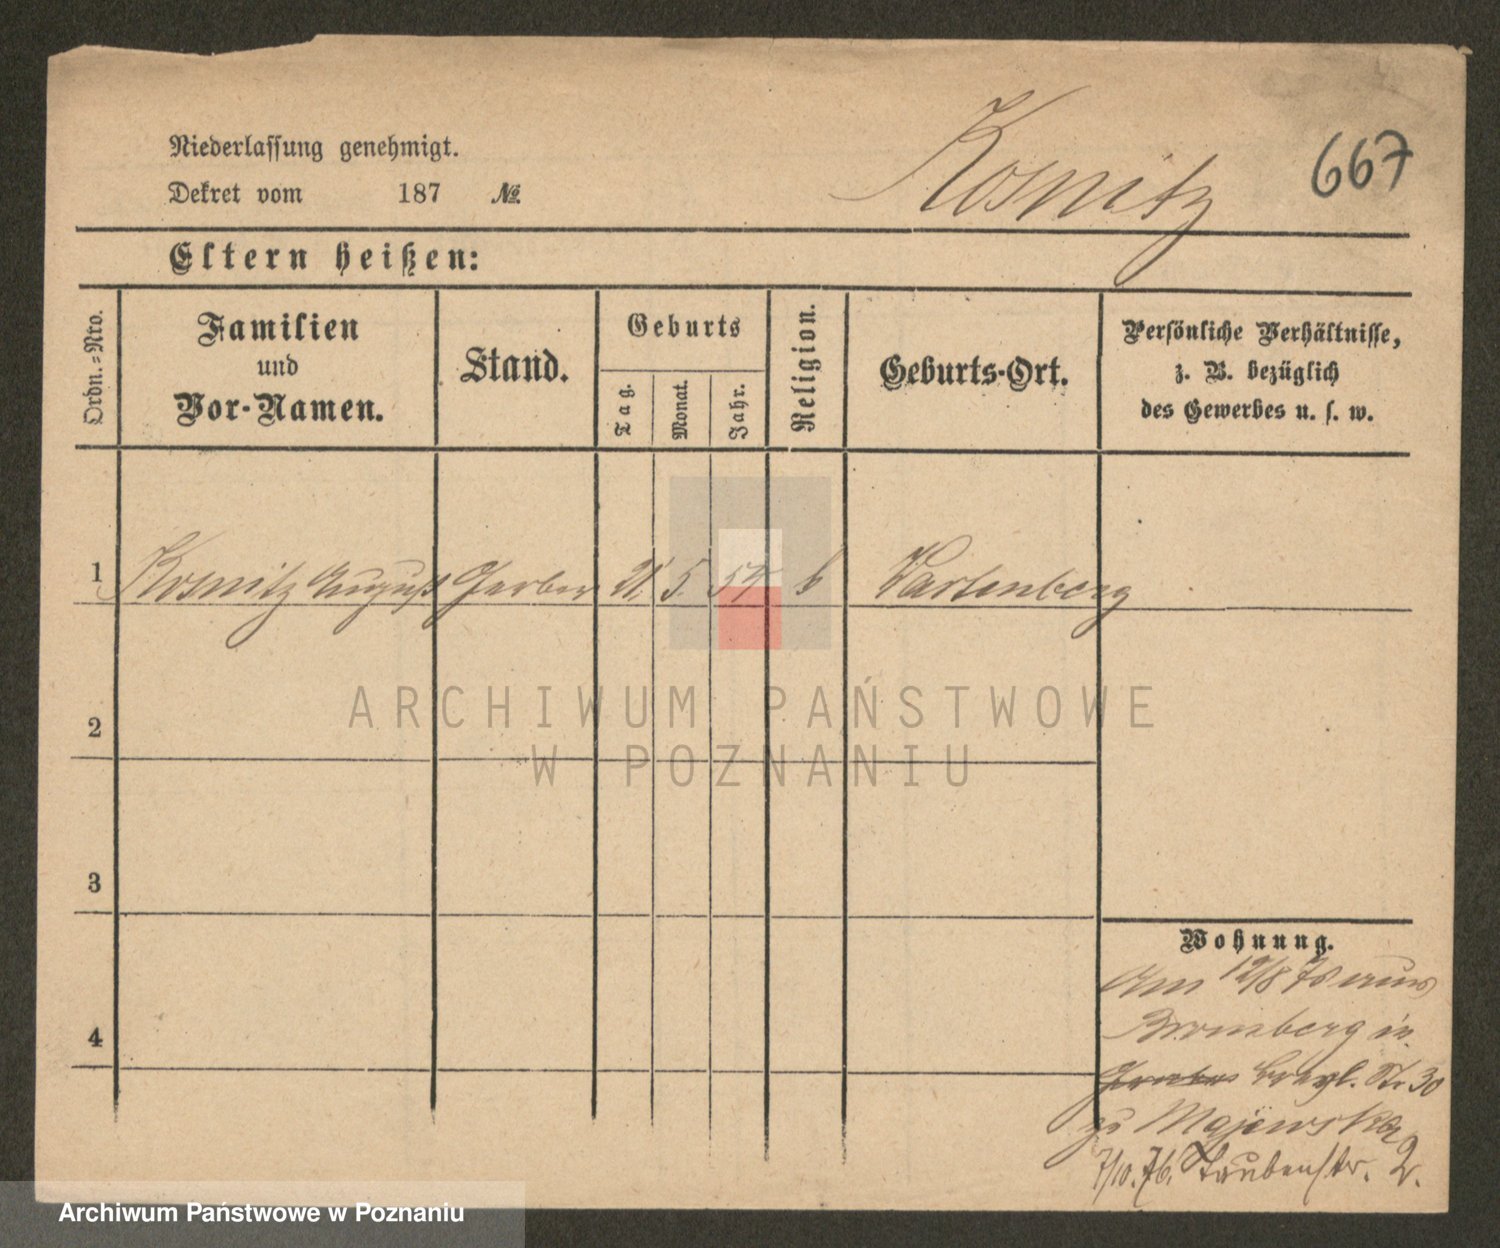 Niederlassung genehmigt.
Dekret vom 187 №
Kosnitz
667
Eltern heißen:
Ordn.=Nro.
Familien
und
Vor-Namen.
Stand.
Geburts
Tag.
Monat.
Jahr.
Religion.
Geburts-Ort.
Persönliche Verhältnisse,
z. B. bezüglich
des Gewerbes u. s. w.
1 Kosnitz August Gerber 21. 5. 54 Wartenberg
2
3
4
Wohnung.
Am 12/8 76 aus
Bromberg in
Bresl. Str 30
zu Majewska
7/10. 76. Taubenstr. 2.
ARCHIWUM PAŃSTWOWE
W POZNANIU
Archiwum Państwowe w Poznaniu